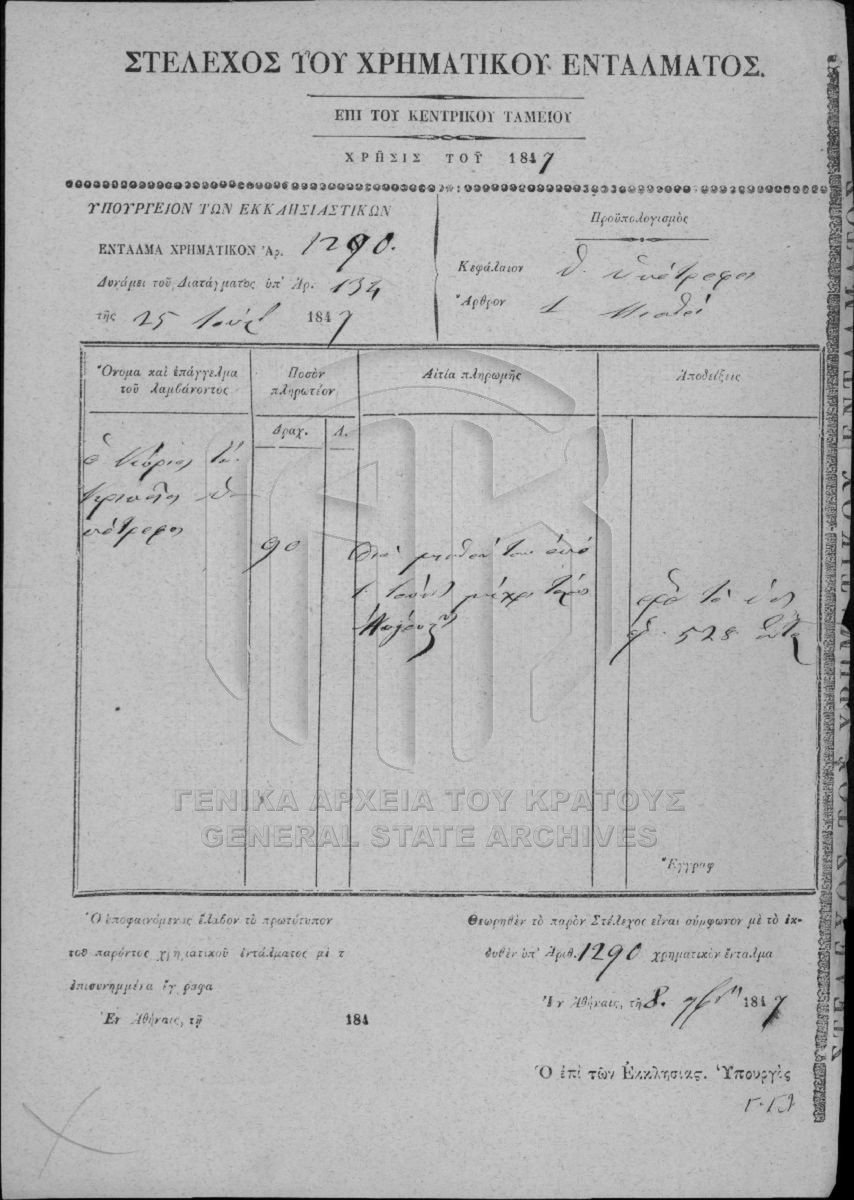 ΣΤΕΛΕΧΟΣ ΤΟΥ ΧΡΗΜΑΤΙΚΟΥ ΕΝΤΑΛΜΑΤΟΣ.
ΕΠΙ ΤΟΥ ΚΕΝΤΡΙΚΟΥ ΤΑΜΕΙΟΥ
ΧΡΗΣΙΣ ΤΟΥ 1847
ΥΠΟΥΡΓΕΙΟΝ ΤΩΝ ΕΚΚΛΗΣΙΑΣΤΙΚΩΝ
ΕΝΤΑΛΜΑ ΧΡΗΜΑΤΙΚΟΝ Ἀρ. 1290.
Δυνάμει τοῦ Διατάγματος ὑπ' Ἀρ. 134
τῆς 25 1847
Προϋπολογισμὸς
Κεφάλαιον Ὑπότροφοι
Ἄρθρον 1 Μισθοὶ
Ὄνομα καὶ ἐπάγγελμα
τοῦ λαμβάνοντος
Ποσὸν
πληρωτέον
Αἰτία πληρωμῆς
Ἀποδείξεις
Δραχ. Λ.
ὑ-
πότροφος
90
Διὰ μισθὸν του ἀπὸ
1 μέχρι
528
ΓΕΝΙΚΑ ΑΡΧΕΙΑ ΤΟΥ ΚΡΑΤΟΥΣ
GENERAL STATE ARCHIVES
Ἔγγραφ
Ὁ ὑποφαινόμενος ἔλαβον τὸ πρωτότυπον
τοῦ παρόντος χρηματικοῦ ἐντάλματος μὲ τ
ἐπισυνημμένα ἔγγραφα
Ἐν Ἀθήναις, τῇ 184
Θεωρηθὲν τὸ παρὸν Στέλεχος εἶναι σύμφωνον μὲ τὸ ἐκ-
δοθὲν ὑπ' Ἀριθ. 1290 χρηματικὸν ἔνταλμα
Ἐν Ἀθήναις, τῇ 8. 7βρίου 1847
Ὁ ἐπὶ τῶν Ἐκκλησιας. Ὑπουργὸς
ΣΤΕΛΕΧΟΣ ΤΟΥ ΧΡΗΜΑΤΙΚΟΥ ΕΝΤΑΛΜΑΤΟΣ